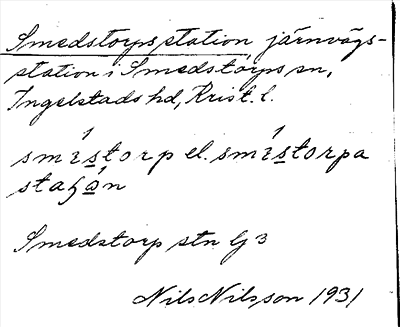 Smedstorps station järnvägs-
station i Smedstorps sn,
Ingelstads hd, Krist. l.
smístorp el. smístorpa
staʂon
Smedstorp stn Gj 3
Nils Nilsson 1931